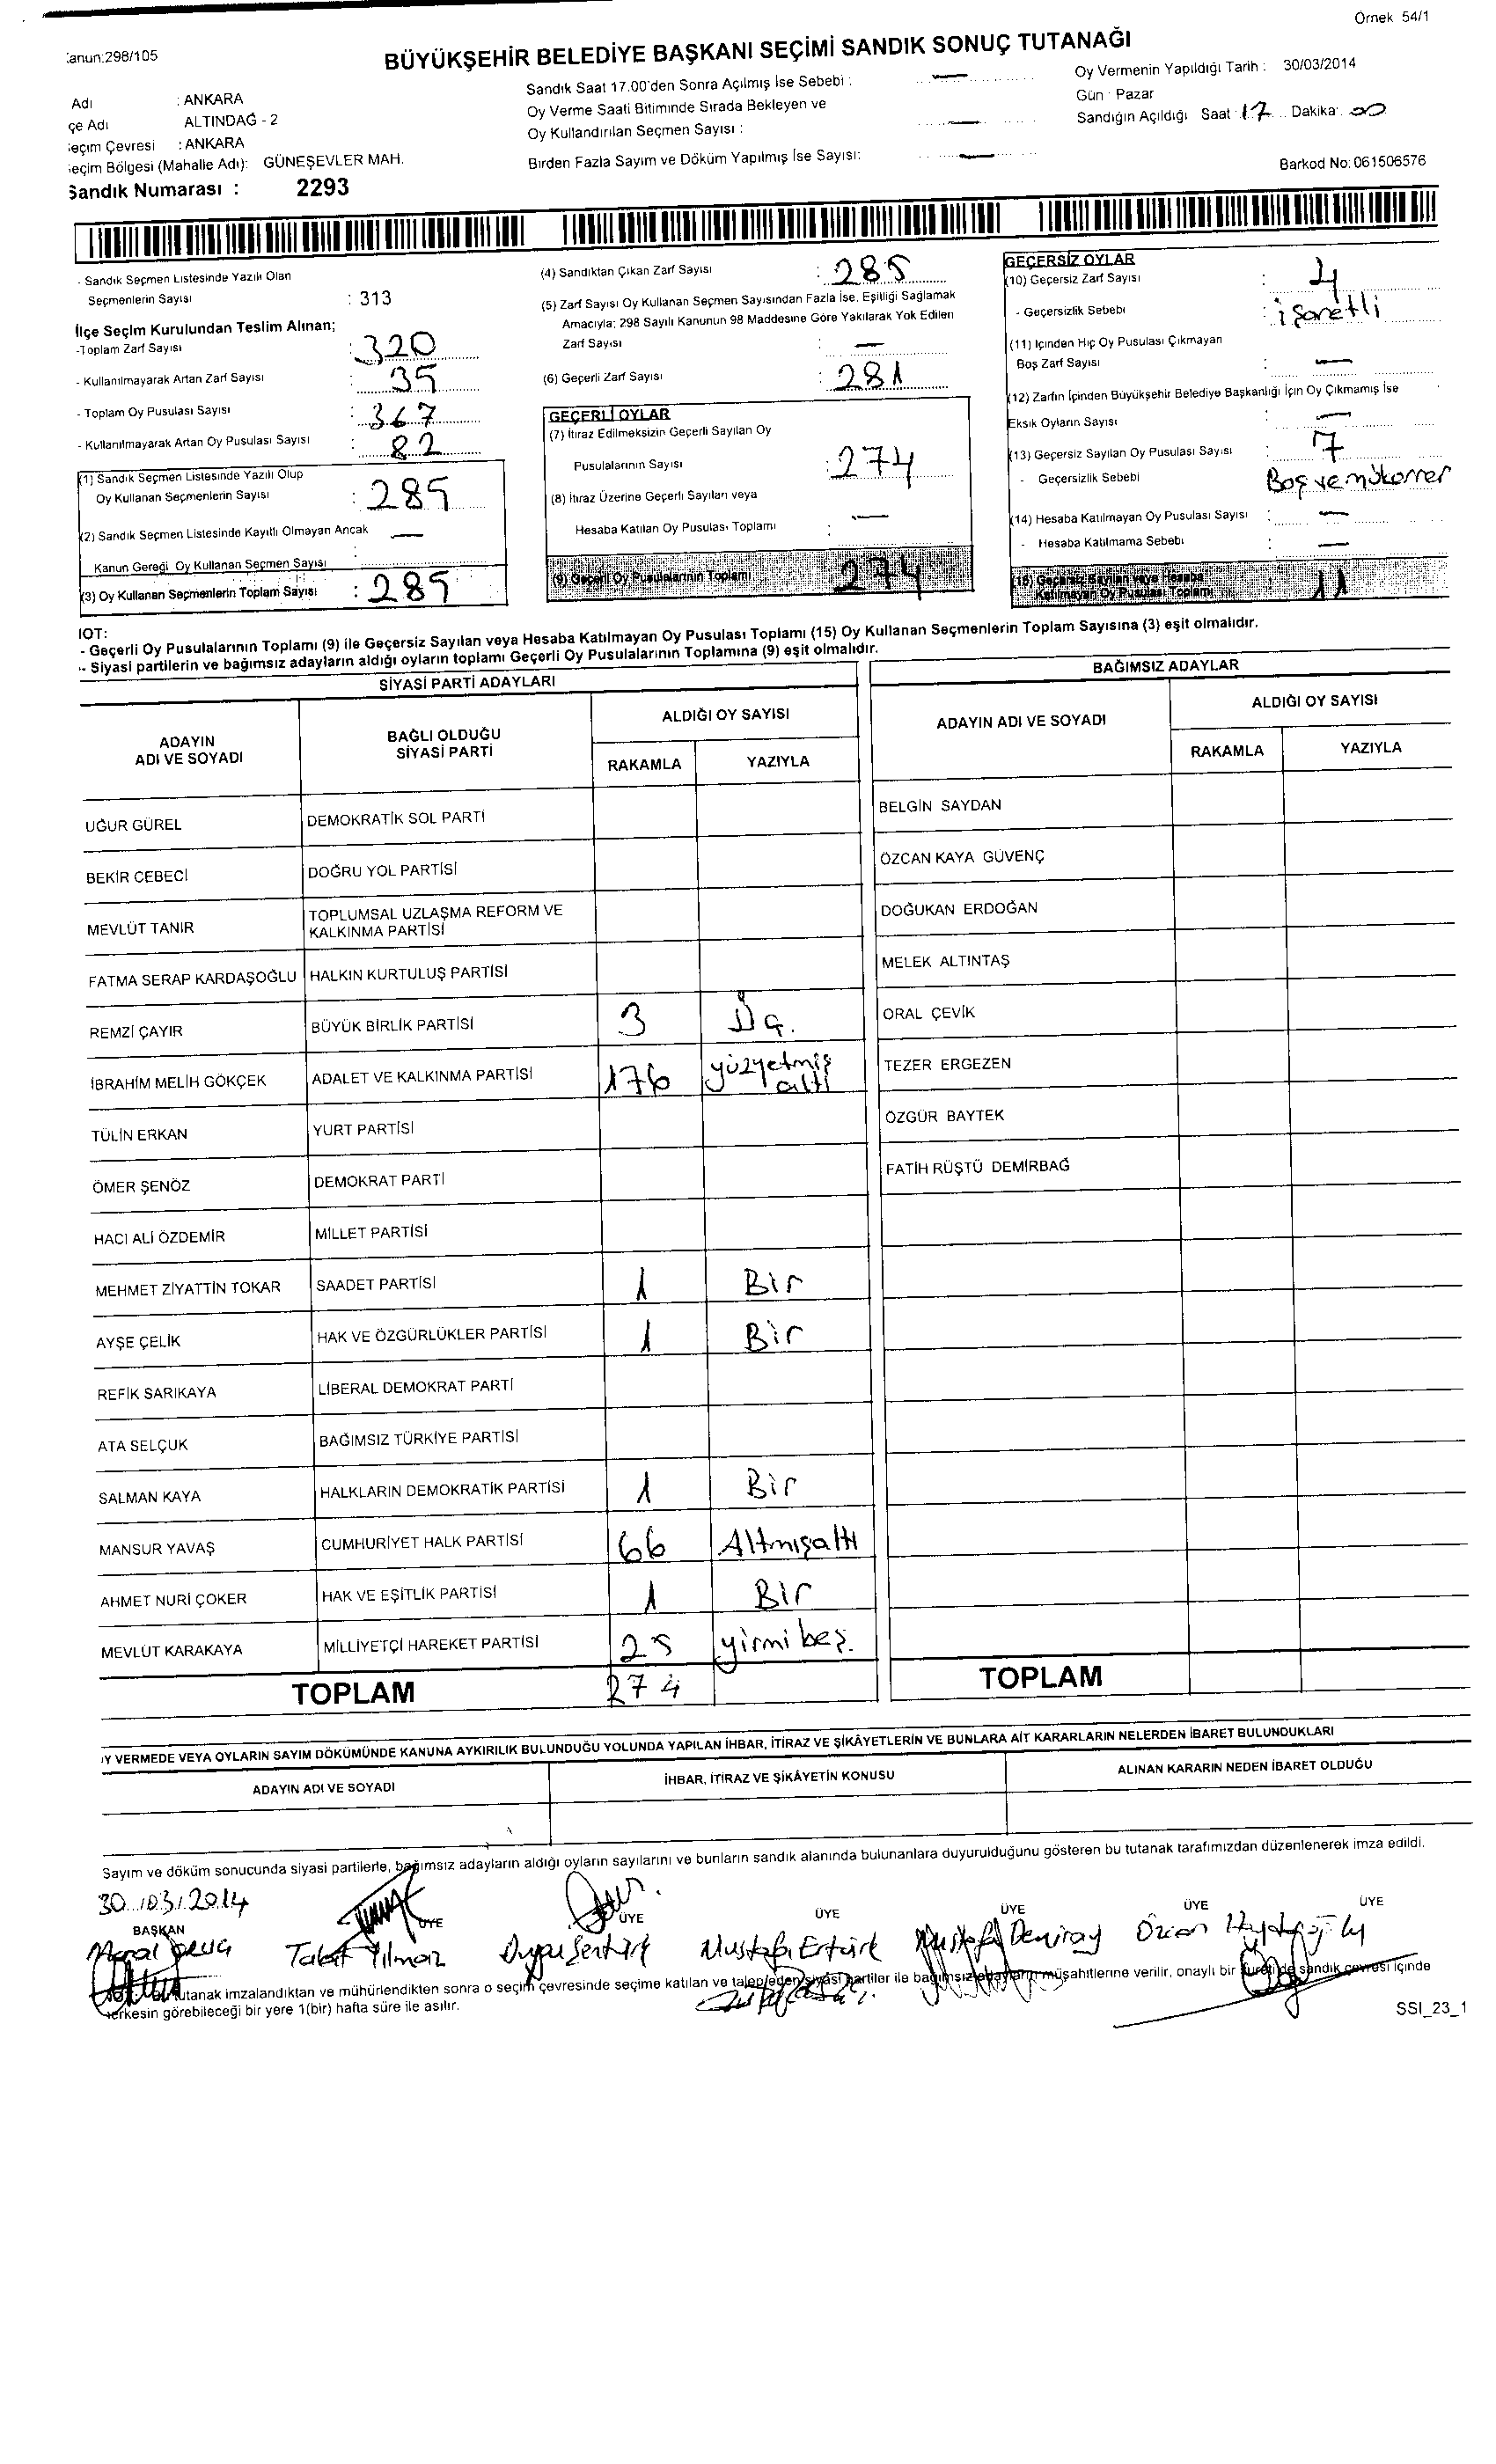 Örnek 54/1
anun:298/105
BÜYÜKŞEHİR BELEDİYE BAŞKANI SEÇİMİ SANDIK SONUÇ TUTANAĞI
Adı : ANKARA
çe Adı ALTINDAĞ - 2
eçim Çevresi : ANKARA
eçim Bölgesi (Mahalle Adı): GÜNEŞEVLER MAH.
Sandık Numarası : 2293
Sandık Saat 17.00'den Sonra Açılmış İse Sebebi : —
Oy Verme Saati Bitiminde Sırada Bekleyen ve
Oy Kullandırılan Seçmen Sayısı : —
Birden Fazla Sayım ve Döküm Yapılmış İse Sayısı: —
Oy Vermenin Yapıldığı Tarih : 30/03/2014
Gün : Pazar
Sandığın Açıldığı Saat : 17 Dakika: 00
Barkod No: 061506576
- Sandık Seçmen Listesinde Yazılı Olan
Seçmenlerin Sayısı : 313
İlçe Seçim Kurulundan Teslim Alınan;
-Toplam Zarf Sayısı : 320
- Kullanılmayarak Artan Zarf Sayısı : 35
- Toplam Oy Pusulası Sayısı : 367
- Kullanılmayarak Artan Oy Pusulası Sayısı : 82
(1) Sandık Seçmen Listesinde Yazılı Olup
Oy Kullanan Seçmenlerin Sayısı : 285
(2) Sandık Seçmen Listesinde Kayıtlı Olmayan Ancak —
Kanun Gereği Oy Kullanan Seçmen Sayısı :
(3) Oy Kullanan Seçmenlerin Toplam Sayısı : 285
(4) Sandıktan Çıkan Zarf Sayısı : 285
(5) Zarf Sayısı Oy Kullanan Seçmen Sayısından Fazla İse, Eşitliği Sağlamak
Amacıyla; 298 Sayılı Kanunun 98 Maddesine Göre Yakılarak Yok Edilen
Zarf Sayısı : —
(6) Geçerli Zarf Sayısı : 281
GEÇERLİ OYLAR
(7) İtiraz Edilmeksizin Geçerli Sayılan Oy
Pusulalarının Sayısı : 274
(8) İtiraz Üzerine Geçerli Sayılan veya
Hesaba Katılan Oy Pusulası Toplamı : —
(9) Geçerli Oy Pusulalarının Toplamı 274
GEÇERSİZ OYLAR
(10) Geçersiz Zarf Sayısı : 4
- Geçersizlik Sebebi : işaretli
(11) İçinden Hiç Oy Pusulası Çıkmayan
Boş Zarf Sayısı : —
(12) Zarfın İçinden Büyükşehir Belediye Başkanlığı İçin Oy Çıkmamış İse
Eksik Oyların Sayısı : —
(13) Geçersiz Sayılan Oy Pusulası Sayısı : 7
- Geçersizlik Sebebi Boş ve mükerrer
(14) Hesaba Katılmayan Oy Pusulası Sayısı : —
- Hesaba Katılmama Sebebi : —
(15) Geçersiz Sayılan veya Hesaba
Katılmayan Oy Pusulası Toplamı 11
IOT:
- Geçerli Oy Pusulalarının Toplamı (9) ile Geçersiz Sayılan veya Hesaba Katılmayan Oy Pusulası Toplamı (15) Oy Kullanan Seçmenlerin Toplam Sayısına (3) eşit olmalıdır.
- Siyasi partilerin ve bağımsız adayların aldığı oyların toplamı Geçerli Oy Pusulalarının Toplamına (9) eşit olmalıdır.
SİYASİ PARTİ ADAYLARI
ADAYIN
ADI VE SOYADI
BAĞLI OLDUĞU
SİYASİ PARTİ
ALDIĞI OY SAYISI
RAKAMLA YAZIYLA
UĞUR GÜREL DEMOKRATİK SOL PARTİ
BEKİR CEBECİ DOĞRU YOL PARTİSİ
MEVLÜT TANIR TOPLUMSAL UZLAŞMA REFORM VE
KALKINMA PARTİSİ
FATMA SERAP KARDAŞOĞLU HALKIN KURTULUŞ PARTİSİ
REMZİ ÇAYIR BÜYÜK BİRLİK PARTİSİ 3 Üç.
İBRAHİM MELİH GÖKÇEK ADALET VE KALKINMA PARTİSİ 176 yüzyetmiş
altı
TÜLİN ERKAN YURT PARTİSİ
ÖMER ŞENÖZ DEMOKRAT PARTİ
HACI ALİ ÖZDEMİR MİLLET PARTİSİ
MEHMET ZİYATTİN TOKAR SAADET PARTİSİ 1 Bir
AYŞE ÇELİK HAK VE ÖZGÜRLÜKLER PARTİSİ 1 Bir
REFİK SARIKAYA LİBERAL DEMOKRAT PARTİ
ATA SELÇUK BAĞIMSIZ TÜRKİYE PARTİSİ
SALMAN KAYA HALKLARIN DEMOKRATİK PARTİSİ 1 Bir
MANSUR YAVAŞ CUMHURİYET HALK PARTİSİ 66 Altmışaltı
AHMET NURİ ÇOKER HAK VE EŞİTLİK PARTİSİ 1 Bir
MEVLÜT KARAKAYA MİLLİYETÇİ HAREKET PARTİSİ 25 yirmi beş.
TOPLAM 274
BAĞIMSIZ ADAYLAR
ADAYIN ADI VE SOYADI
ALDIĞI OY SAYISI
RAKAMLA YAZIYLA
BELGİN SAYDAN
ÖZCAN KAYA GÜVENÇ
DOĞUKAN ERDOĞAN
MELEK ALTINTAŞ
ORAL ÇEVİK
TEZER ERGEZEN
ÖZGÜR BAYTEK
FATİH RÜŞTÜ DEMİRBAĞ
TOPLAM
Y VERMEDE VEYA OYLARIN SAYIM DÖKÜMÜNDE KANUNA AYKIRILIK BULUNDUĞU YOLUNDA YAPILAN İHBAR, İTİRAZ VE ŞİKÂYETLERİN VE BUNLARA AİT KARARLARIN NELERDEN İBARET BULUNDUKLARI
ADAYIN ADI VE SOYADI İHBAR, İTİRAZ VE ŞİKÂYETİN KONUSU ALINAN KARARIN NEDEN İBARET OLDUĞU
Sayım ve döküm sonucunda siyasi partilerle, bağımsız adayların aldığı oyların sayılarını ve bunların sandık alanında bulunanlara duyurulduğunu gösteren bu tutanak tarafımızdan düzenlenerek imza edildi.
30/03/2014
BAŞKAN ÜYE ÜYE ÜYE ÜYE ÜYE ÜYE
Talat Yılmaz Duygu Şentürk Mustafa Ertürk Mustafa Demiray Özcan
utanak imzalandıktan ve mühürlendikten sonra o seçim çevresinde seçime katılan ve talep eden siyasi partiler ile bağımsız adayların müşahitlerine verilir, onaylı bir sureti de sandık çevresi içinde
erkesin görebileceği bir yere 1(bir) hafta süre ile asılır.
SSI_23_1